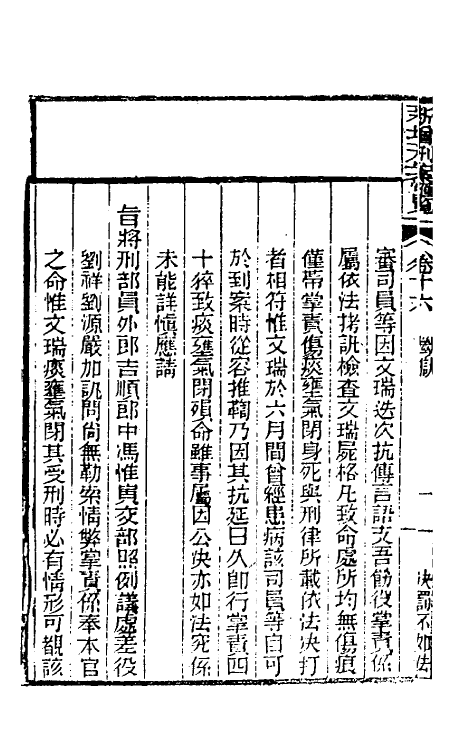 新增刑案匯覽
卷十六
斷獄
一
決罰不如法
審司員等因文瑞迭次抗傳言語支吾飭役掌責係
屬依法拷訊檢查文瑞屍格凡致命處所均無傷痕
僅帶掌責傷痰壅氣閉身死與刑律所載依法決打
者相符惟文瑞於六月間曾經患病該司員等自可
於到案時從容推鞫乃因其抗延日久即行掌責四
十猝致痰壅氣閉殞命雖事屬因公決亦如法究係
未能詳慎應請
旨將刑部員外郎吉順郎中馮惟貞交部照例議處差役
劉祥劉源嚴加訊問尚無勒索情弊掌責係奉本官
之命惟文瑞痰壅氣閉其受刑時必有情形可觀該